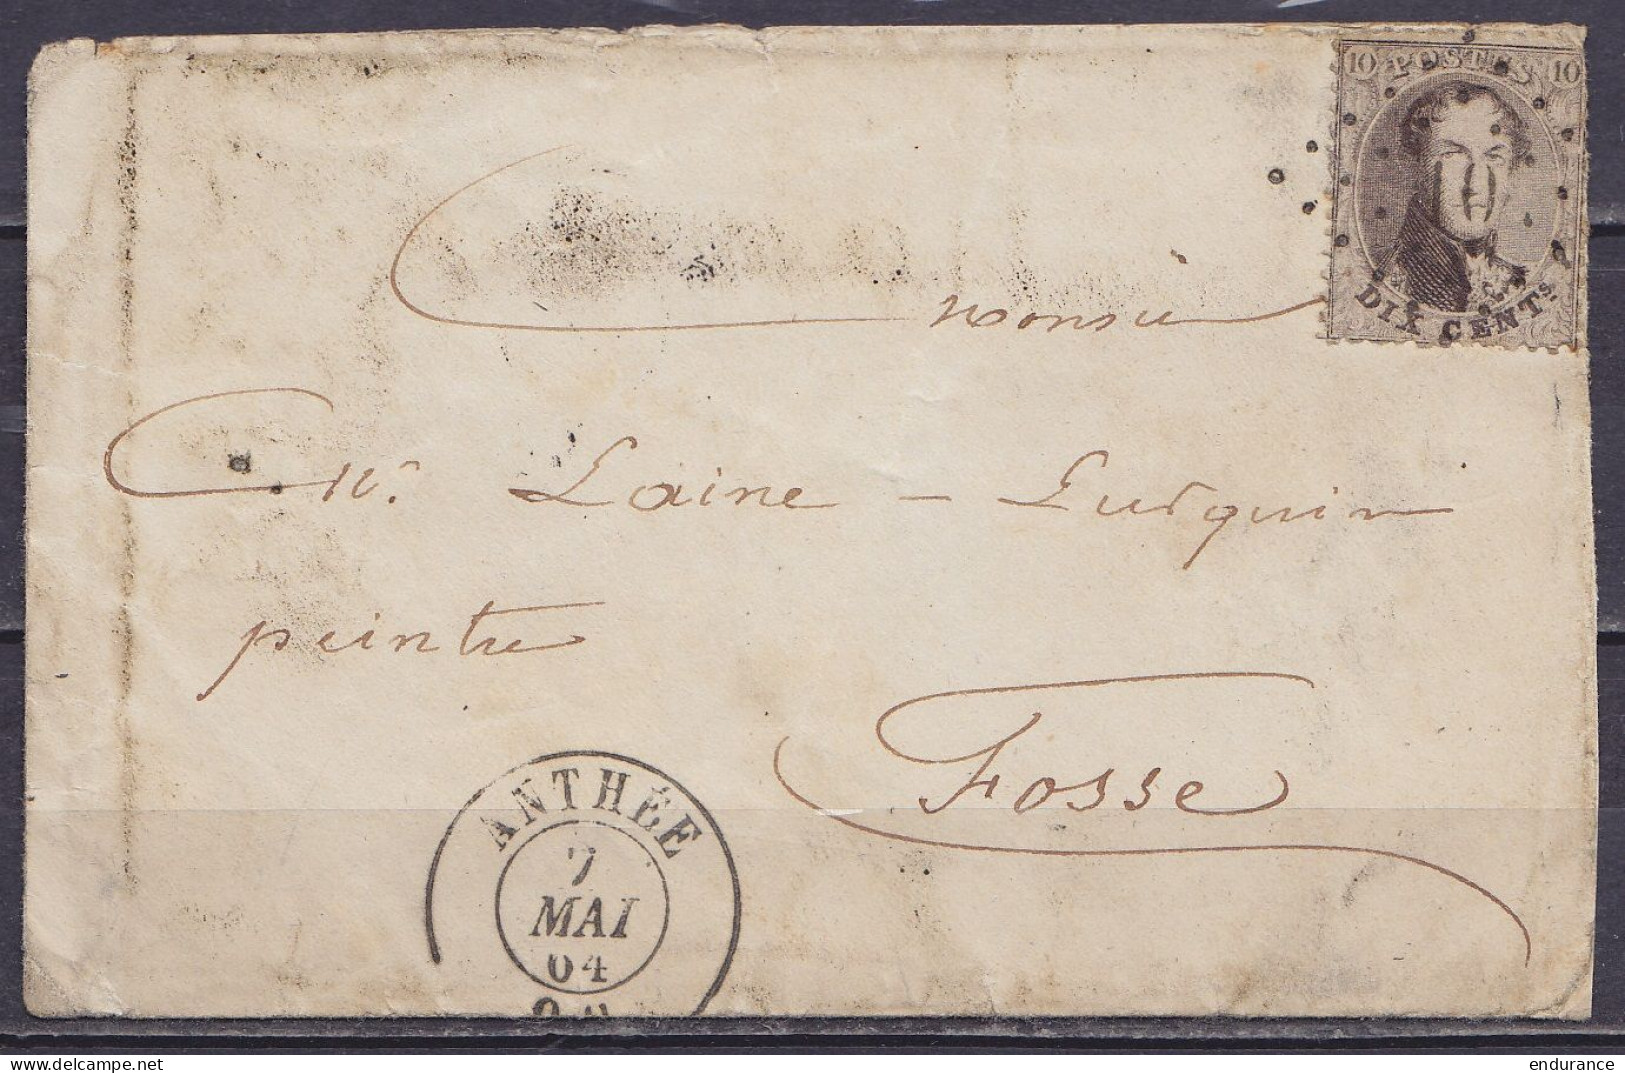 10 POSTES 10
DIX CENTS.
Monsieur
Mr. Laine - Lurquin
peintre
Fosse
ANTHÉE
7
MAI
64
endurance